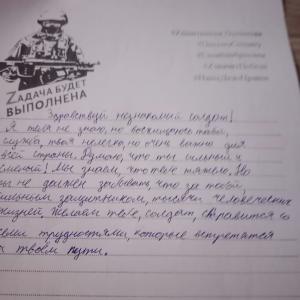 ZАДАЧА БУДЕТ
ВЫПОЛНЕНА
Здравствуй незнакомый солдат!
Я тебя не знаю, но восхищаюсь тобой,
служба твоя нелегка, но очень важна для
всей страны. Думаю, что ты сильный и
смелый! Мы знаем, что тебе тяжело, но
ты не должен забывать, что за тобой,
сильным защитником, тысячи человеческих
жизней. Желаем тебе, солдат, справится со
всеми трудностями, которые встретятся
на твоём пути.